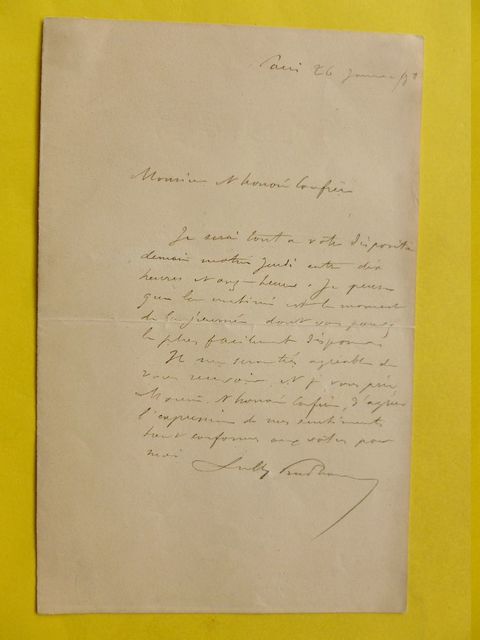 Paris 26 janvier
Monsieur et honoré Confrère
Je serai tout à votre disposition
demain matin Jeudi entre dix
heures et onze heures. Je pense
que la matinée est le moment
de la journée dont vous pouvez
le plus facilement disposer.
Il me sera très agréable de
vous recevoir, et je vous prie,
Monsieur et honoré Confrère, d'agréer
l'expression de mes sentiments
tout conformes aux vôtres pour
moi
Sully Prudhomme